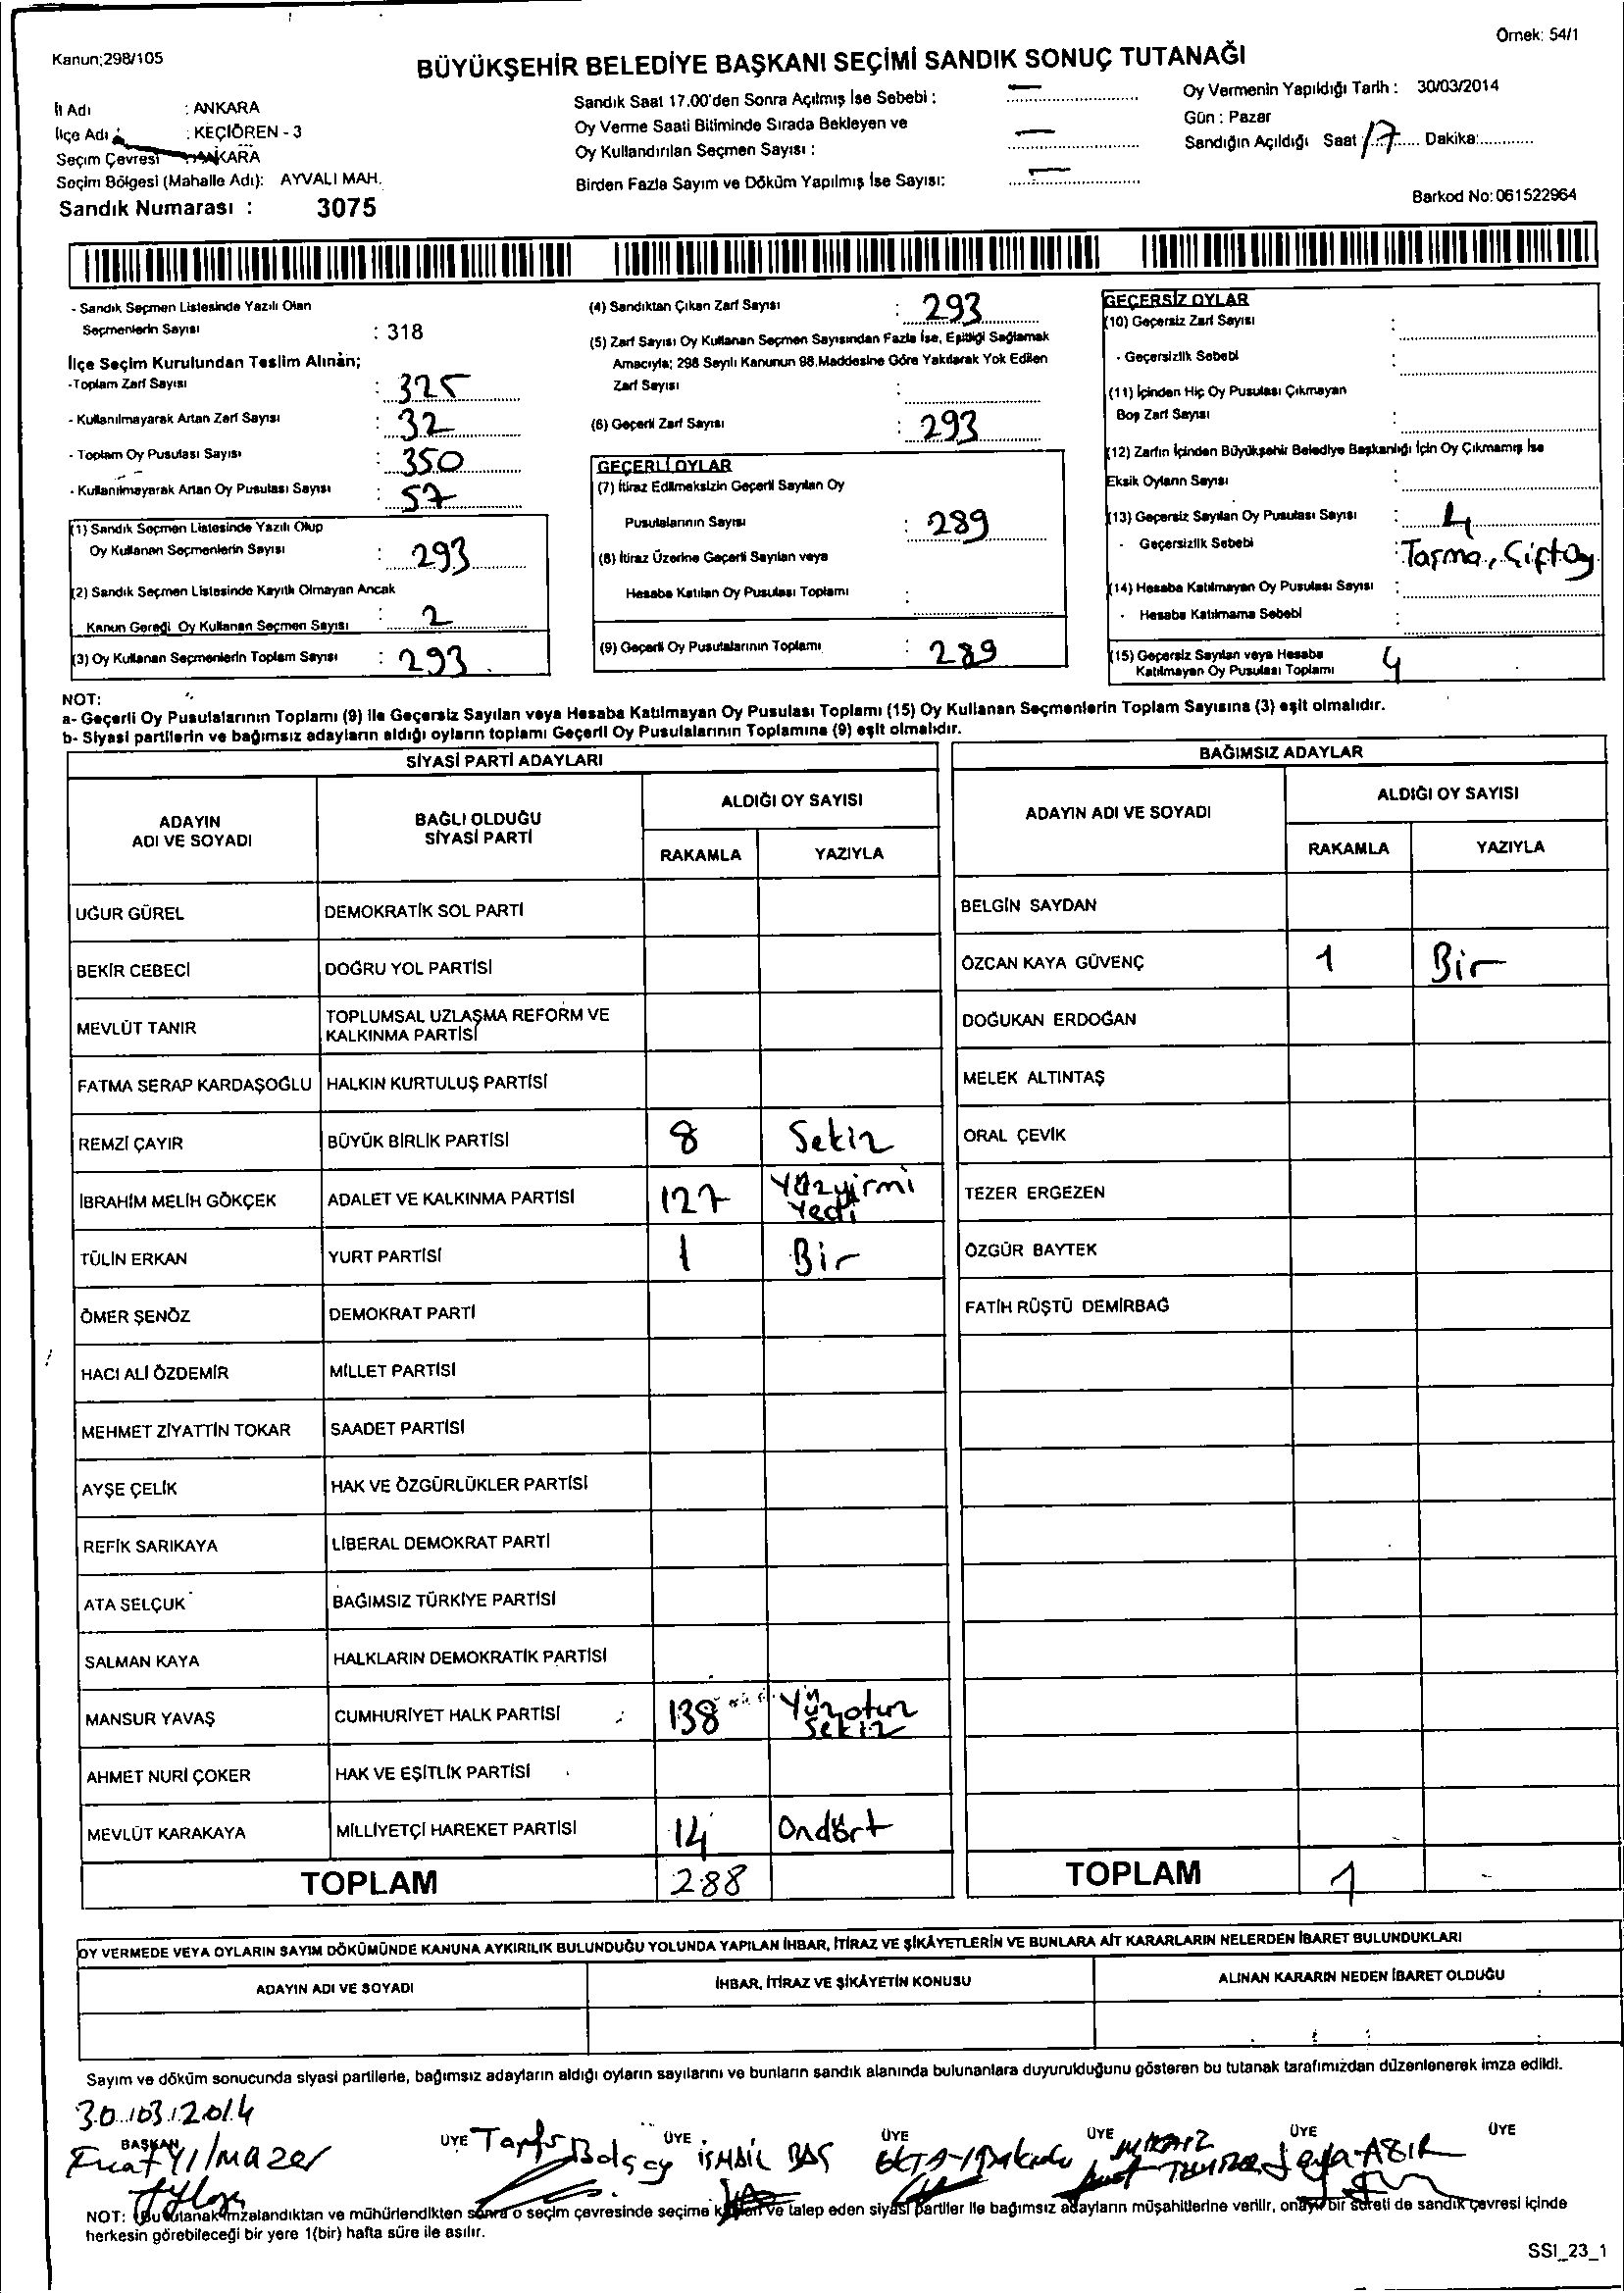 Örnek: 54/1
Kanun;298/105
BÜYÜKŞEHİR BELEDİYE BAŞKANI SEÇİMİ SANDIK SONUÇ TUTANAĞI
İl Adı : ANKARA
İlçe Adı : KEÇİÖREN - 3
Seçim Çevresi : ANKARA
Seçim Bölgesi (Mahalle Adı): AYVALI MAH.
Sandık Numarası : 3075
Sandık Saat 17.00'den Sonra Açılmış İse Sebebi : —
Oy Verme Saati Bitiminde Sırada Bekleyen ve
Oy Kullandırılan Seçmen Sayısı : —
Birden Fazla Sayım ve Döküm Yapılmış İse Sayısı: —
Oy Vermenin Yapıldığı Tarih : 30/03/2014
Gün : Pazar
Sandığın Açıldığı Saat 17 Dakika:
Barkod No: 061522964
- Sandık Seçmen Listesinde Yazılı Olan
Seçmenlerin Sayısı : 318
İlçe Seçim Kurulundan Teslim Alınan;
-Toplam Zarf Sayısı : 325
- Kullanılmayarak Artan Zarf Sayısı : 32
- Toplam Oy Pusulası Sayısı : 350
- Kullanılmayarak Artan Oy Pusulası Sayısı : 57
(1) Sandık Seçmen Listesinde Yazılı Olup
Oy Kullanan Seçmenlerin Sayısı : 293
(2) Sandık Seçmen Listesinde Kayıtlı Olmayan Ancak
Kanun Gereği Oy Kullanan Seçmen Sayısı : 2
(3) Oy Kullanan Seçmenlerin Toplam Sayısı : 293
(4) Sandıktan Çıkan Zarf Sayısı : 293
(5) Zarf Sayısı Oy Kullanan Seçmen Sayısından Fazla İse, Eşitliği Sağlamak
Amacıyla; 298 Sayılı Kanunun 98.Maddesine Göre Yakılarak Yok Edilen
Zarf Sayısı :
(6) Geçerli Zarf Sayısı : 293
GEÇERLİ OYLAR
(7) İtiraz Edilmeksizin Geçerli Sayılan Oy
Pusulalarının Sayısı : 289
(8) İtiraz Üzerine Geçerli Sayılan veya
Hesaba Katılan Oy Pusulası Toplamı :
(9) Geçerli Oy Pusulalarının Toplamı : 289
GEÇERSİZ OYLAR
(10) Geçersiz Zarf Sayısı :
- Geçersizlik Sebebi :
(11) İçinden Hiç Oy Pusulası Çıkmayan
Boş Zarf Sayısı :
(12) Zarfın İçinden Büyükşehir Belediye Başkanlığı İçin Oy Çıkmamış İse
Eksik Oyların Sayısı :
(13) Geçersiz Sayılan Oy Pusulası Sayısı : 4
- Geçersizlik Sebebi : Taşma, Çift Oy
(14) Hesaba Katılmayan Oy Pusulası Sayısı :
- Hesaba Katılmama Sebebi :
(15) Geçersiz Sayılan veya Hesaba
Katılmayan Oy Pusulası Toplamı 4
NOT:
a- Geçerli Oy Pusulalarının Toplamı (9) ile Geçersiz Sayılan veya Hesaba Katılmayan Oy Pusulası Toplamı (15) Oy Kullanan Seçmenlerin Toplam Sayısına (3) eşit olmalıdır.
b- Siyasi partilerin ve bağımsız adayların aldığı oyların toplamı Geçerli Oy Pusulalarının Toplamına (9) eşit olmalıdır.
SİYASİ PARTİ ADAYLARI
ADAYIN ADI VE SOYADI BAĞLI OLDUĞU SİYASİ PARTİ ALDIĞI OY SAYISI
RAKAMLA YAZIYLA
UĞUR GÜREL DEMOKRATİK SOL PARTİ
BEKİR CEBECİ DOĞRU YOL PARTİSİ
MEVLÜT TANIR TOPLUMSAL UZLAŞMA REFORM VE KALKINMA PARTİSİ
FATMA SERAP KARDAŞOĞLU HALKIN KURTULUŞ PARTİSİ
REMZİ ÇAYIR BÜYÜK BİRLİK PARTİSİ 8 Sekiz
İBRAHİM MELİH GÖKÇEK ADALET VE KALKINMA PARTİSİ 127 Yüzyirmi Yedi
TÜLİN ERKAN YURT PARTİSİ 1 Bir
ÖMER ŞENÖZ DEMOKRAT PARTİ
HACI ALİ ÖZDEMİR MİLLET PARTİSİ
MEHMET ZİYATTİN TOKAR SAADET PARTİSİ
AYŞE ÇELİK HAK VE ÖZGÜRLÜKLER PARTİSİ
REFİK SARIKAYA LİBERAL DEMOKRAT PARTİ
ATA SELÇUK BAĞIMSIZ TÜRKİYE PARTİSİ
SALMAN KAYA HALKLARIN DEMOKRATİK PARTİSİ
MANSUR YAVAŞ CUMHURİYET HALK PARTİSİ 138 Yüzotuz Sekiz
AHMET NURİ ÇOKER HAK VE EŞİTLİK PARTİSİ
MEVLÜT KARAKAYA MİLLİYETÇİ HAREKET PARTİSİ 14 Ondört
TOPLAM 288
BAĞIMSIZ ADAYLAR
ADAYIN ADI VE SOYADI ALDIĞI OY SAYISI
RAKAMLA YAZIYLA
BELGİN SAYDAN
ÖZCAN KAYA GÜVENÇ 1 Bir
DOĞUKAN ERDOĞAN
MELEK ALTINTAŞ
ORAL ÇEVİK
TEZER ERGEZEN
ÖZGÜR BAYTEK
FATİH RÜŞTÜ DEMİRBAĞ
TOPLAM 1 -
OY VERMEDE VEYA OYLARIN SAYIM DÖKÜMÜNDE KANUNA AYKIRILIK BULUNDUĞU YOLUNDA YAPILAN İHBAR, İTİRAZ VE ŞİKÂYETLERİN VE BUNLARA AİT KARARLARIN NELERDEN İBARET BULUNDUKLARI
ADAYIN ADI VE SOYADI İHBAR, İTİRAZ VE ŞİKÂYETİN KONUSU ALINAN KARARIN NEDEN İBARET OLDUĞU
Sayım ve döküm sonucunda siyasi partilerle, bağımsız adayların aldığı oyların sayılarını ve bunların sandık alanında bulunanlara duyurulduğunu gösteren bu tutanak tarafımızdan düzenlenerek imza edildi.
30/03/2014
BAŞKAN ÜYE ÜYE ÜYE ÜYE ÜYE ÜYE
Fuat Yılmazer İSMAİL BAŞ
NOT: Bu tutanak imzalandıktan ve mühürlendikten sonra o seçim çevresinde seçime katılan ve talep eden siyasi partiler ile bağımsız adayların müşahitlerine verilir, onaylı bir sureti de sandık çevresi içinde
herkesin görebileceği bir yere 1(bir) hafta süre ile asılır.
SSI_23_1